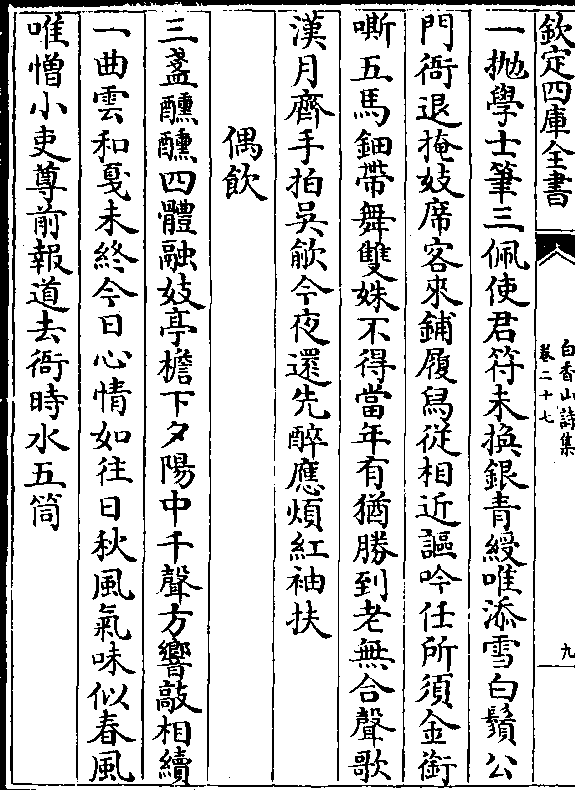 欽定四庫全書
白香山詩集
卷二十七
九
一抛學士筆三佩使君符未換銀青綬唯添雪白鬚公
門衙退掩妓席客來鋪履舄從相近謳吟任所須金銜
嘶五馬鈿帶舞雙姝不得當年有猶勝到老無合聲歌
漢月齊手拍吳歈今夜還先醉應煩紅袖扶
偶飲
三盞醺醺四體融妓亭檐下夕陽中千聲方響敲相續
一曲雲和戛未終今日心情如往日秋風氣味似春風
唯憎小吏尊前報道去衙時水五筒